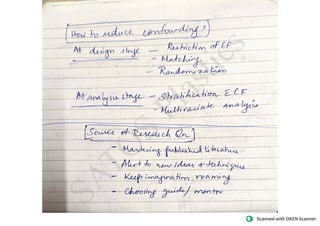 How to reduce confounding?
At design stage – Restriction of CF
– Matching
– Randomization
At analysis stage – Stratification E CF
– Multivariate analysis
Source of Research Qn
– Mastering published literature
– Alert to new ideas & techniques
– Keep imagination roaming
– Choosing guide/mentor
Scanned with OKEN Scanner